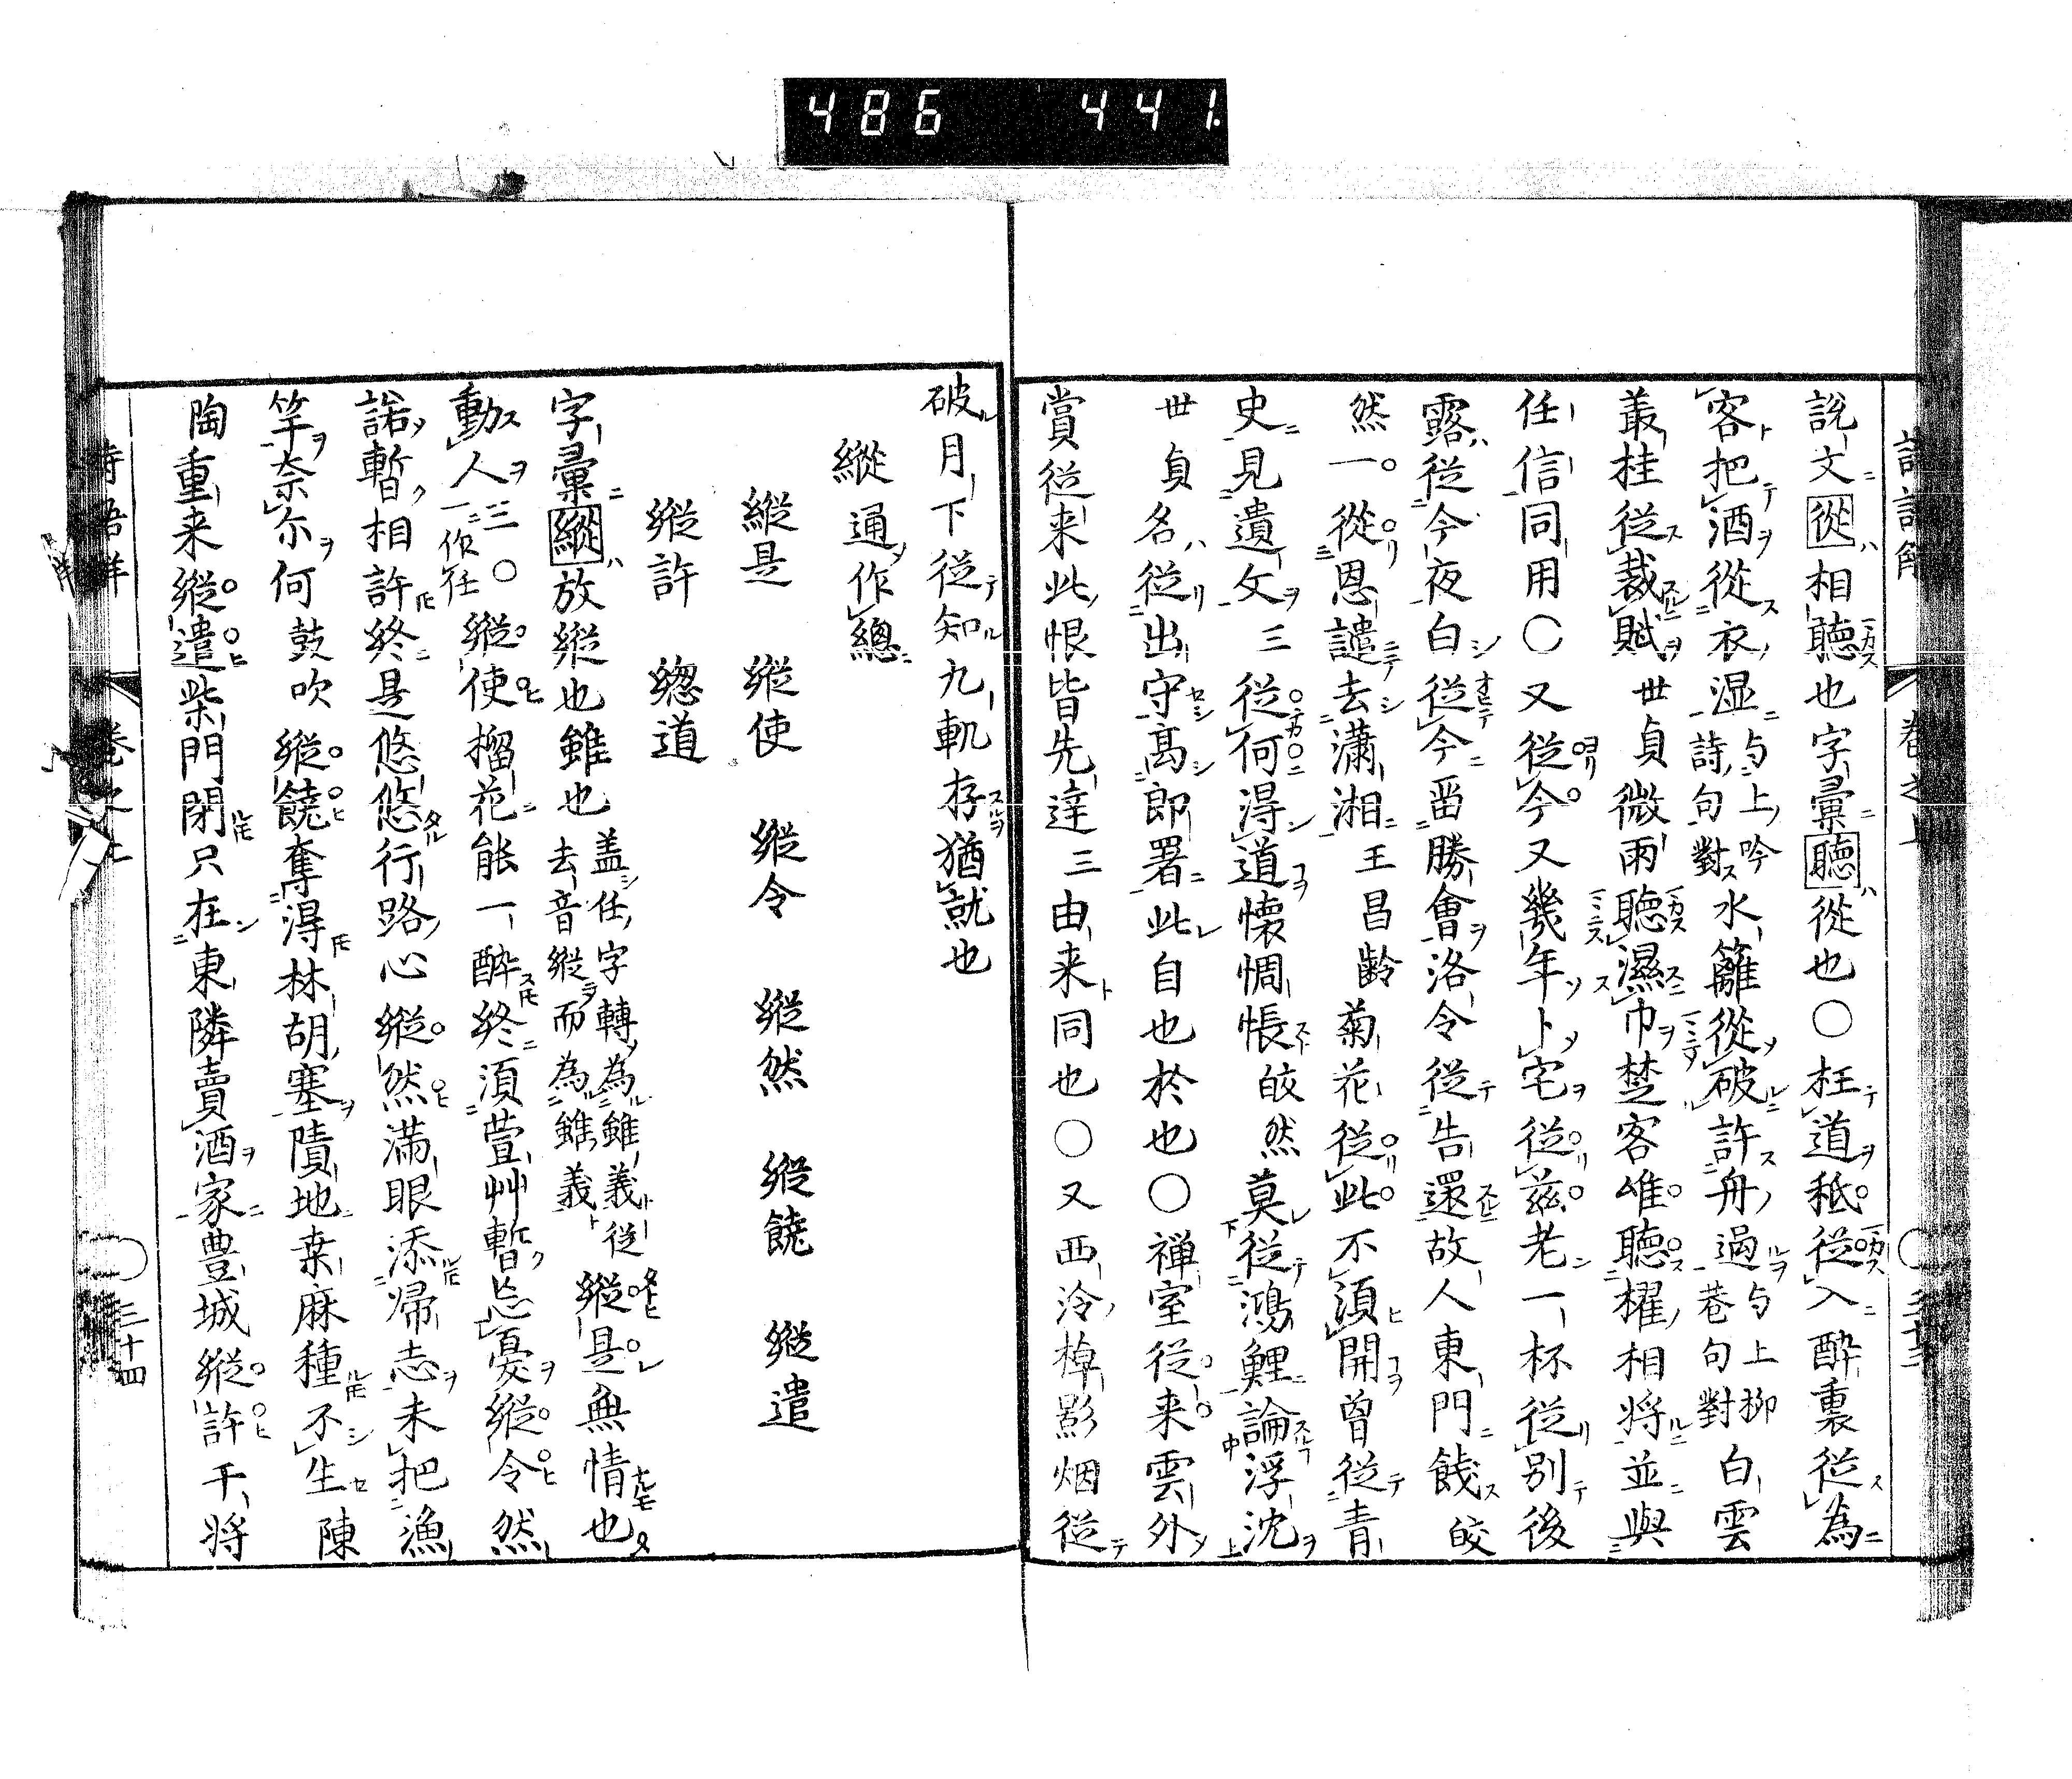 486 441
說文從相聽也字彙聽從也○枉道秪從入醉裏從為
客把酒從衣湿与上吟詩句對水籬從破許舟過与上柳巷句對白雲
叢桂従裁賦世貞微雨聴濕巾楚客唯聴櫂相将並與
任信同用○又従今又幾年卜宅従茲老一杯従別後
露従今夜白従今畱勝會洛令従告還故人東門餞皎
然一從恩譴去瀟湘王昌齢菊花従此不須開曽従青
史見遺文三従何得道懐惆悵皎然莫従鴻鯉論浮沈
世貞名従出守髙郎署此自也於也○禅室従来雲外
賞従来此恨皆先達三由来同也○又西泠棹影烟従
破月下従知九軌存猶就也
縱通作總
縦是 縦使 縦令 縦然 縦饒 縦遣
縦許 縂道
字彙縱放縦也雖也盖任字轉為雖義従去音縦而為雖義縦是無情也
動人三一作任○縦使榴花能一醉終須萱艸暫忘憂縦令然
諾暫相許終是悠悠行路心縦然満眼添帰志未把漁
竿奈尔何鼓吹縦饒奪得林胡塞磧地桒麻種不生陳
陶重来縦遣柴門閉只在東隣賣酒家豊城縦許干将
卷之上
三十四